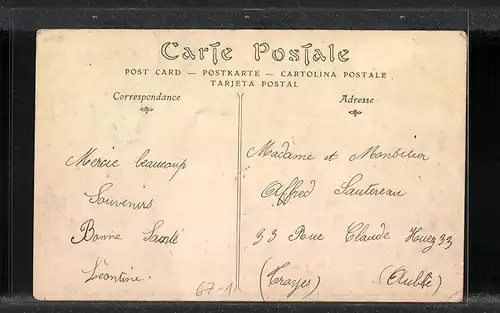 Carte Postale
POST CARD — POSTKARTE — CARTOLINA POSTALE
TARJETA POSTAL
Correspondance
Adresse
Mercie beaucoup
Souvenirs
Bonne Santé
Léontine.
Madame et Monsieur
Alfred Sautereau
33 Rue Claude Huez 33
(Troyes) (Aube)
67-1